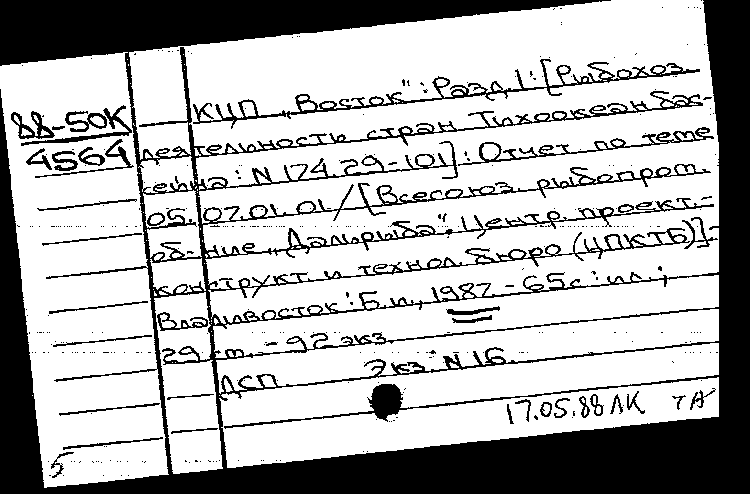 88-50К
4564
КЦП „Восток": Разд. 1: [Рыбохоз.
деятельности стран Тихоокеан. бас-
сейна: N 174.29-101]: Отчет по теме
05.07.01.01 / [Всесоюз. рыбопром.
об-ние „Дальрыба", Центр. проект.-
конструкт. и технол. бюро (ЦПКТБ)].-
Владивосток: Б.и., 1987. - 65с.: ил.;
29 см. - 92 экз.
ДСП. Экз. N 16.
17.05.88 ЛК
5